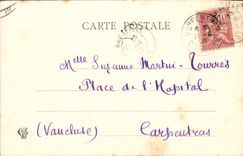 CARTE POSTALE
Mlle Suzanne Martini-Tourres
Place de l'Hopital
(Vaucluse) Carpentras